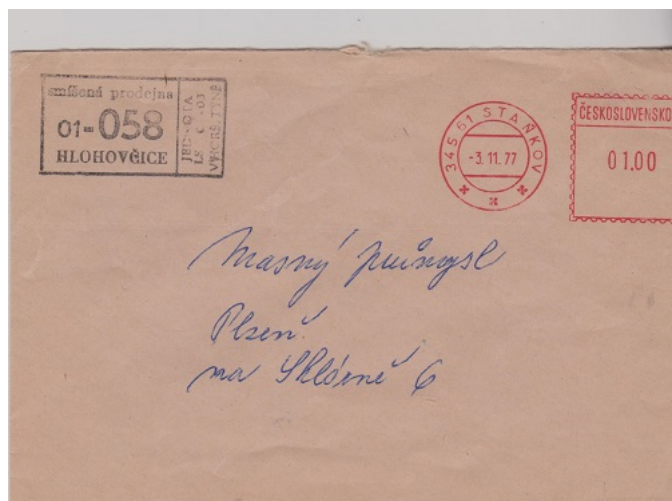 smíšená prodejna
01-058
HLOHOVČICE
JEDNOTA
345 61 STAŇKOV
-3.11.77
ČESKOSLOVENSKO
01.00
Masný průmysl
Plzeň
na Sklárně 6